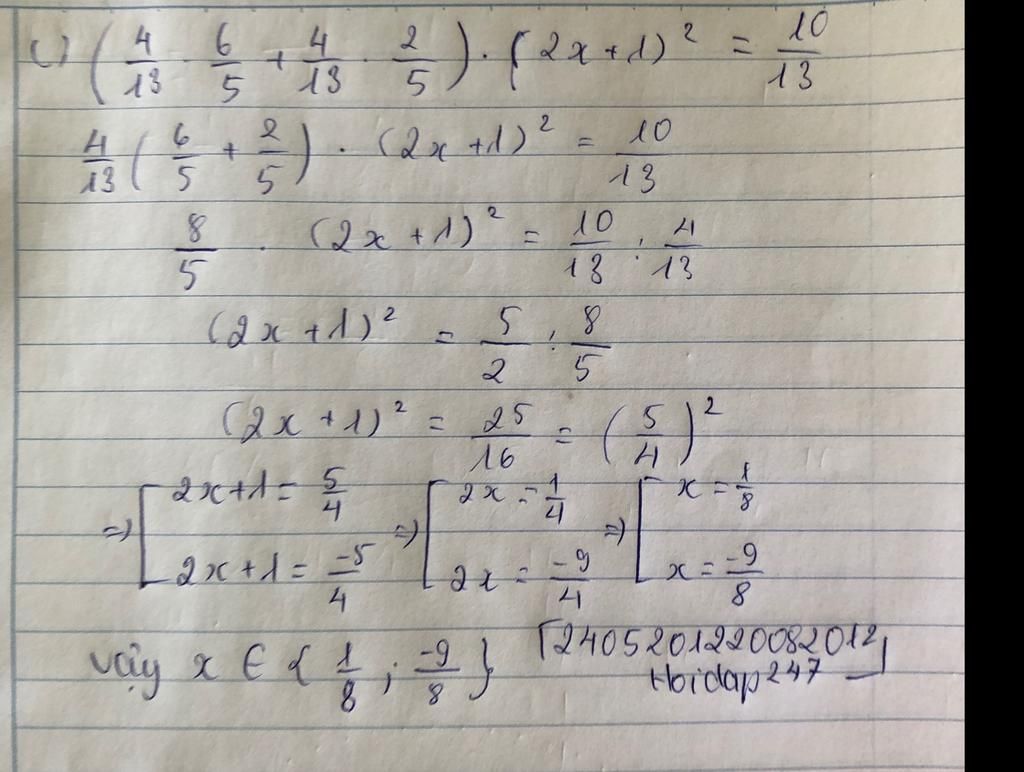 c) (4/13 . 6/5 + 4/13 . 2/5) . (2x+1)² = 10/13
4/13 (6/5 + 2/5) . (2x+1)² = 10/13
8/5 . (2x+1)² = 10/13 : 4/13
(2x+1)² = 5/2 : 8/5
(2x+1)² = 25/16 = (5/4)²
=> [ 2x+1 = 5/4 => [ 2x = 1/4 => [ x = 1/8
2x+1 = -5/4 2x = -9/4 x = -9/8
vậy x ∈ { 1/8 ; -9/8 }
⌈2405201220082012⌋
Hoidap247